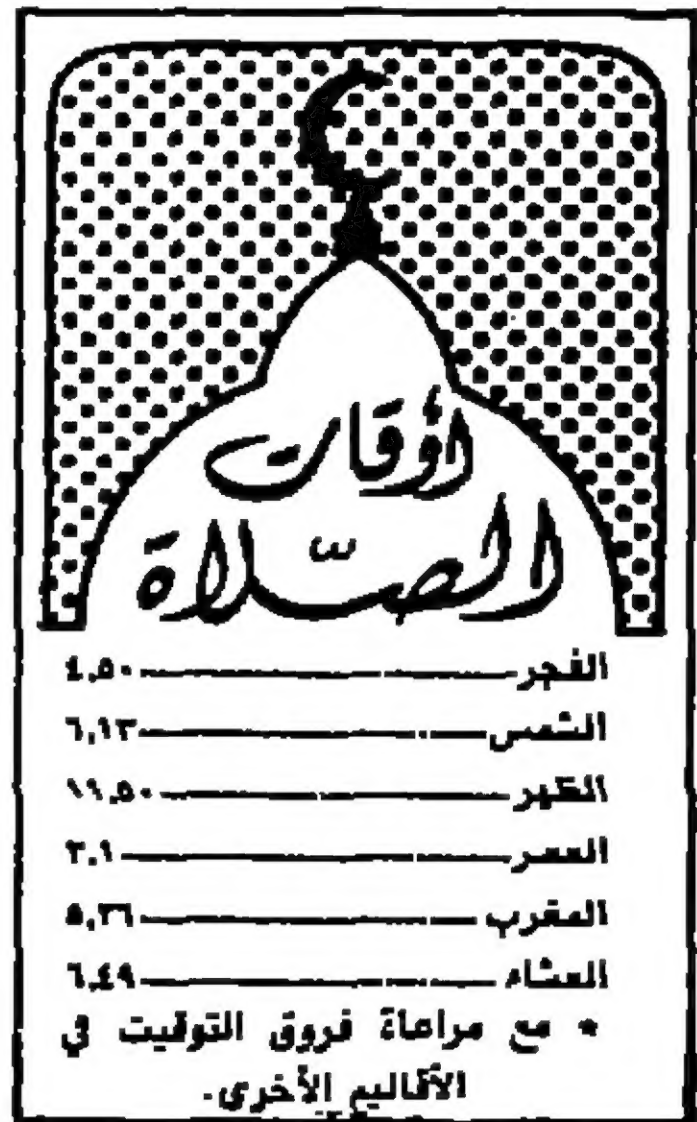 أوقات
الصّلاة
الفجر ٤,٥٠
الشمس ٦,١٣
الظهر ١١,٥٠
العصر ٣,١
المغرب ٥,٢٦
العشاء ٦,٤٩
* مع مراعاة فروق التوقيت في
الأقاليم الأخرى.